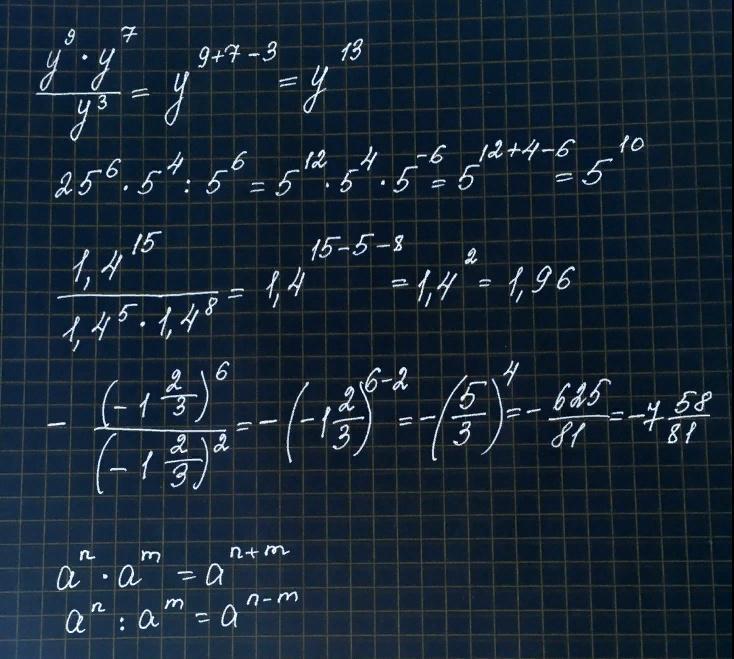 y⁹ · y⁷ / y³ = y⁹⁺⁷⁻³ = y¹³
25⁶ · 5⁴ : 5⁶ = 5¹² · 5⁴ · 5⁻⁶ = 5¹²⁺⁴⁻⁶ = 5¹⁰
1,4¹⁵ / 1,4⁵ · 1,4⁸ = 1,4¹⁵⁻⁵⁻⁸ = 1,4² = 1,96
- (-1 2/3)⁶ / (-1 2/3)² = -(-1 2/3)⁶⁻² = -(5/3)⁴ = - 625/81 = -7 58/81
aⁿ · aᵐ = aⁿ⁺ᵐ
aⁿ : aᵐ = aⁿ⁻ᵐ